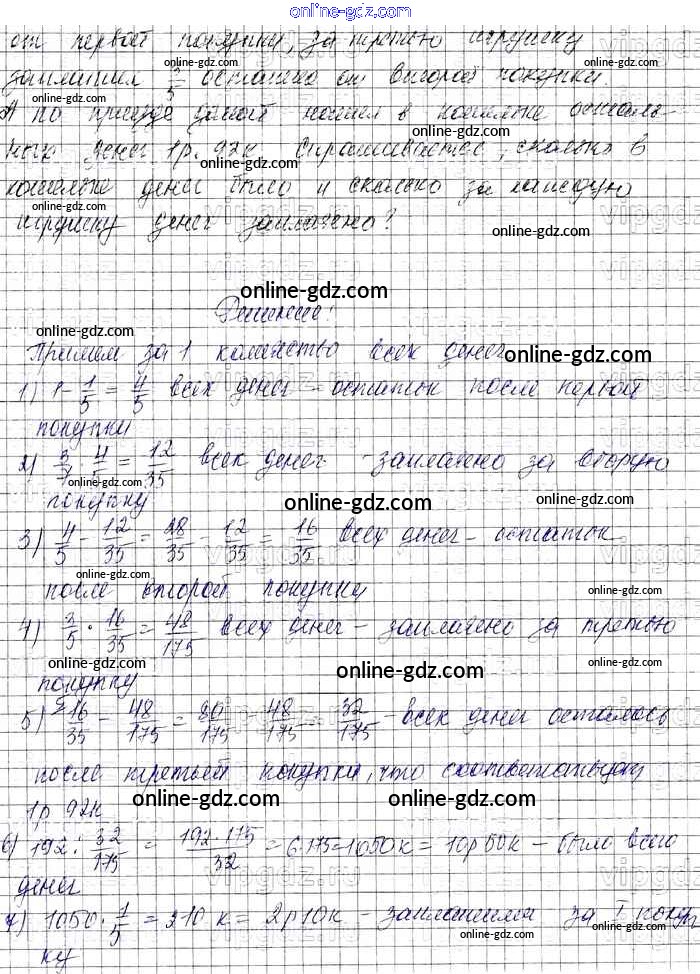 online-gdz.com
от первой покупки, за третью игрушку
заплатил 3/5 остатка от второй покупки.
А по приезде домой нашел в кошельке осталь-
ных денег 1р. 92к. Спрашивается, сколько в
кошельке денег было и сколько за каждую
игрушку денег заплачено?
Решение:
Примем за 1 количество всех денег
1) 1 - 1/5 = 4/5 всех денег - остаток после первой
покупки
2) 3/7 · 4/5 = 12/35 всех денег - заплачено за вторую
покупку
3) 4/5 - 12/35 = 28/35 - 12/35 = 16/35 всех денег - остаток
после второй покупки
4) 3/5 · 16/35 = 48/175 всех денег - заплачено за третью
покупку
5) 16/35 - 48/175 = 80/175 - 48/175 = 32/175 - всех денег осталось
после третьей покупки, что соответствует
1р 92к
6) 192 : 32/175 = 192·175/32 = 6·175 = 1050к = 10р 50к - было всего
денег
7) 1050 · 1/5 = 210к = 2р10к - заплатили за I покуп
ку